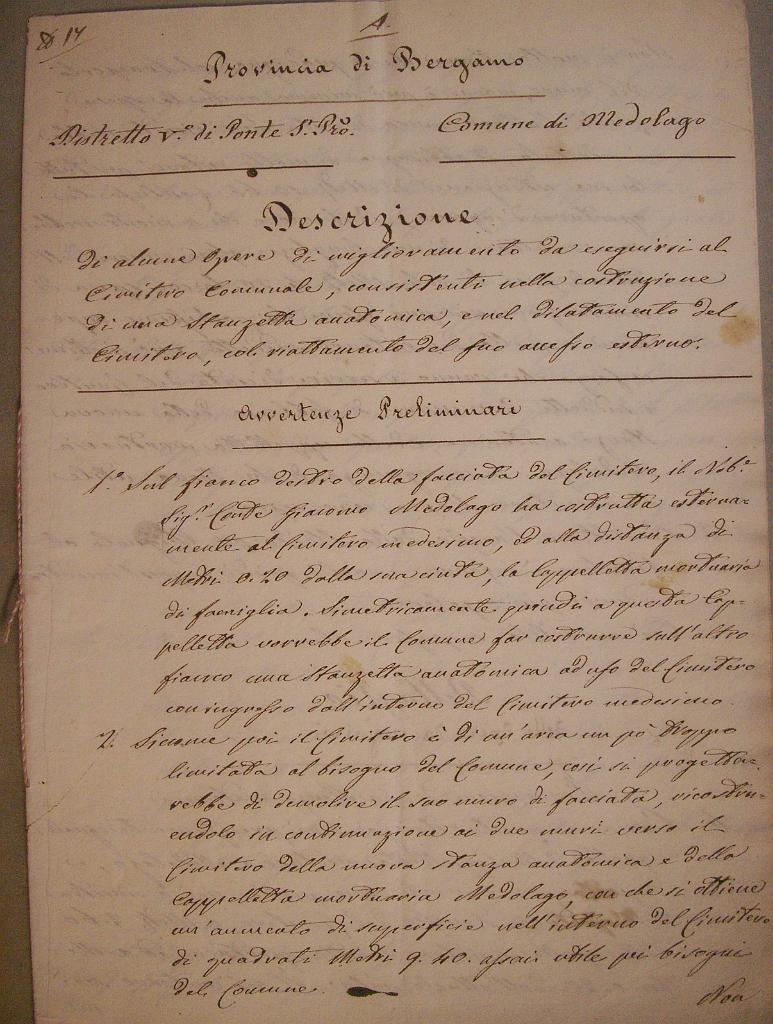 17
A.
Provincia di Bergamo
Distretto V.° di Ponte S. Pro.
Comune di Medolago
Descrizione
di alcune Opere di miglioramento da eseguirsi al
Cimitero Comunale, consistenti nella costruzione
di una Stanzetta anatomica, e nel dilatamento del
Cimitero, col riattamento del suo accesso esterno.
Avvertenze Preliminari
1.° Sul fianco destro della facciata del Cimitero, il Nob.e
Sig.r Conte Giacomo Medolago ha costrutta esterna-
mente al Cimitero medesimo, ed alla distanza di
Metri 0.20 dalla sua cinta, la Cappelletta mortuaria
di famiglia. Simetricamente quindi a questa Cap-
pelletta vorrebbe il Comune far costrurre sull'altro
fianco una Stanzetta anatomica ad uso del Cimitero
con ingresso dall'interno del Cimitero medesimo.
2. Siccome poi il Cimitero è di un'area un pò troppo
limitata al bisogno del Comune, così si progetta-
rebbe di demolire il suo muro di facciata, ricostru-
endolo in continuazione ai due muri verso il
Cimitero della nuova stanza anatomica e della
Cappelletta mortuaria Medolago, con che si ottiene
un'aumento di superficie nell'interno del Cimitero
di quadrati Metri 9.40. assai utile pei bisogni
del Comune.
Non